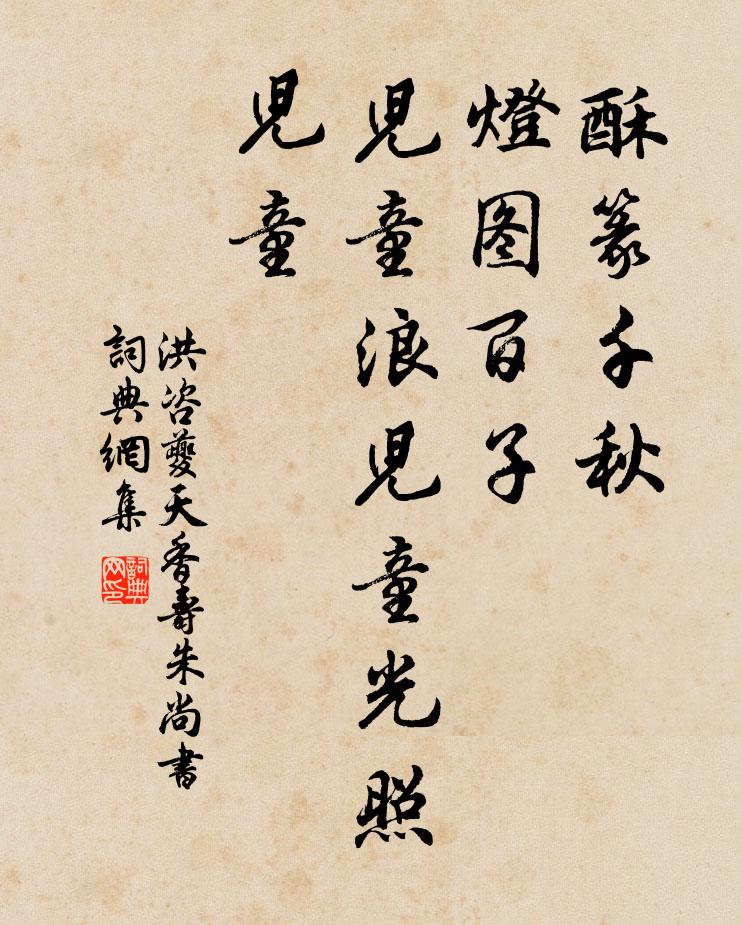 酥篆千秋
燈图百子
児童浪児童光照
児童
洪咨夔天香壽朱尚書
詞典網集
詞典网印